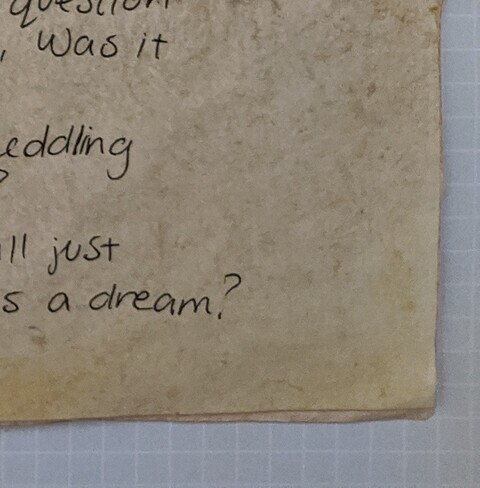 question
, Was it
eddling
?
ll just
s a dream?